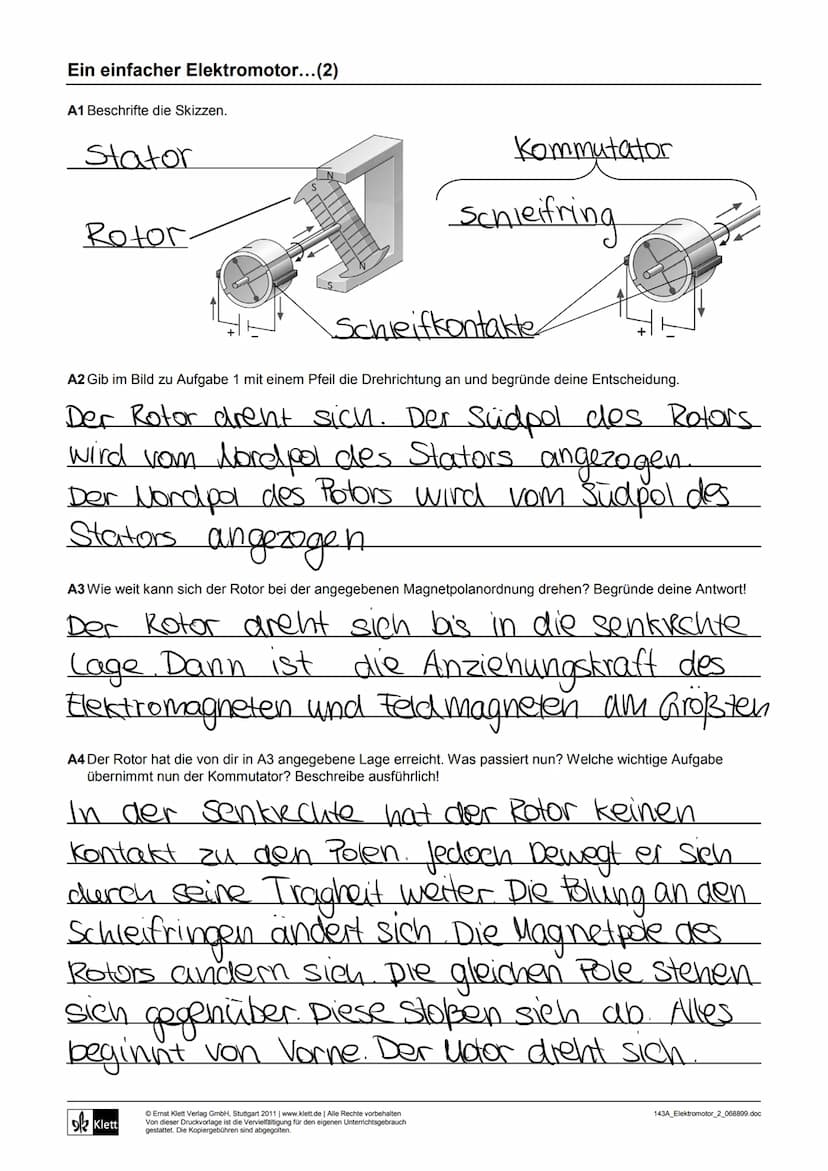 Ein einfacher Elektromotor…(2)
A1 Beschrifte die Skizzen.
Stator
Kommutator
N
S
Rotor
Schleifring
N
S
Schleifkontakte
+ -
+ -
A2 Gib im Bild zu Aufgabe 1 mit einem Pfeil die Drehrichtung an und begründe deine Entscheidung.
Der Rotor dreht sich. Der Südpol des Rotors
wird vom Nordpol des Stators angezogen.
Der Nordpol des Rotors wird vom Südpol des
Stators angezogen
A3 Wie weit kann sich der Rotor bei der angegebenen Magnetpolanordnung drehen? Begründe deine Antwort!
Der Rotor dreht sich bis in die senkrechte
Lage. Dann ist die Anziehungskraft des
Elektromagneten und Feldmagneten am Größten
A4 Der Rotor hat die von dir in A3 angegebene Lage erreicht. Was passiert nun? Welche wichtige Aufgabe
übernimmt nun der Kommutator? Beschreibe ausführlich!
In der Senkrechte hat der Rotor keinen
Kontakt zu den Polen. Jedoch bewegt er sich
durch seine Tragheit weiter. Die Polung an den
Schleifringen ändert sich. Die Magnetpole des
Rotors andern sich. Die gleichen Pole stehen
sich gegenüber. Diese Stoßen sich ab. Alles
beginnt von Vorne. Der Motor dreht sich.
Klett
© Ernst Klett Verlag GmbH, Stuttgart 2011 | www.klett.de | Alle Rechte vorbehalten
Von dieser Druckvorlage ist die Vervielfältigung für den eigenen Unterrichtsgebrauch
gestattet. Die Kopiergebühren sind abgegolten.
143A_Elektromotor_2_068899.doc